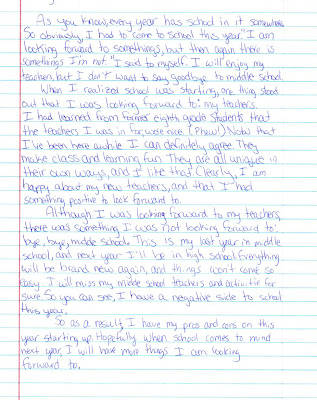 As you know, every year has school in it somewhere.
So obviously, I had to come to school this year. "I am
looking forward to somethings, but then again there is
somethings I'm not." I said to myself. I will enjoy my
teachers, but I don't want to say goodbye to middle school.
When I realized school was starting, one thing stood
out that I was looking forward to: my teachers.
I had learned from former eighth grade students that
the teachers I was in for, were nice. (Phew!) Now that
I've been here awhile I can definitely agree. They
make class and learning fun. They are all unique in
their own ways, and I like that. Clearly, I am
happy about my new teachers, and that I had
something positive to look forward to.
Although I was looking forward to my teachers,
there was something I was not looking forward to:
bye, bye, middle school. This is my last year in middle
school, and next year I'll be in high school. Everything
will be brand new again, and things won't come so
easy. I will miss my middle school teachers and activities for
sure. So you can see, I have a negative side to school
this year.
So as a result, I have my pros and cons on this
year starting up. Hopefully when school comes to mind
next year, I will have more things I am looking
forward to.